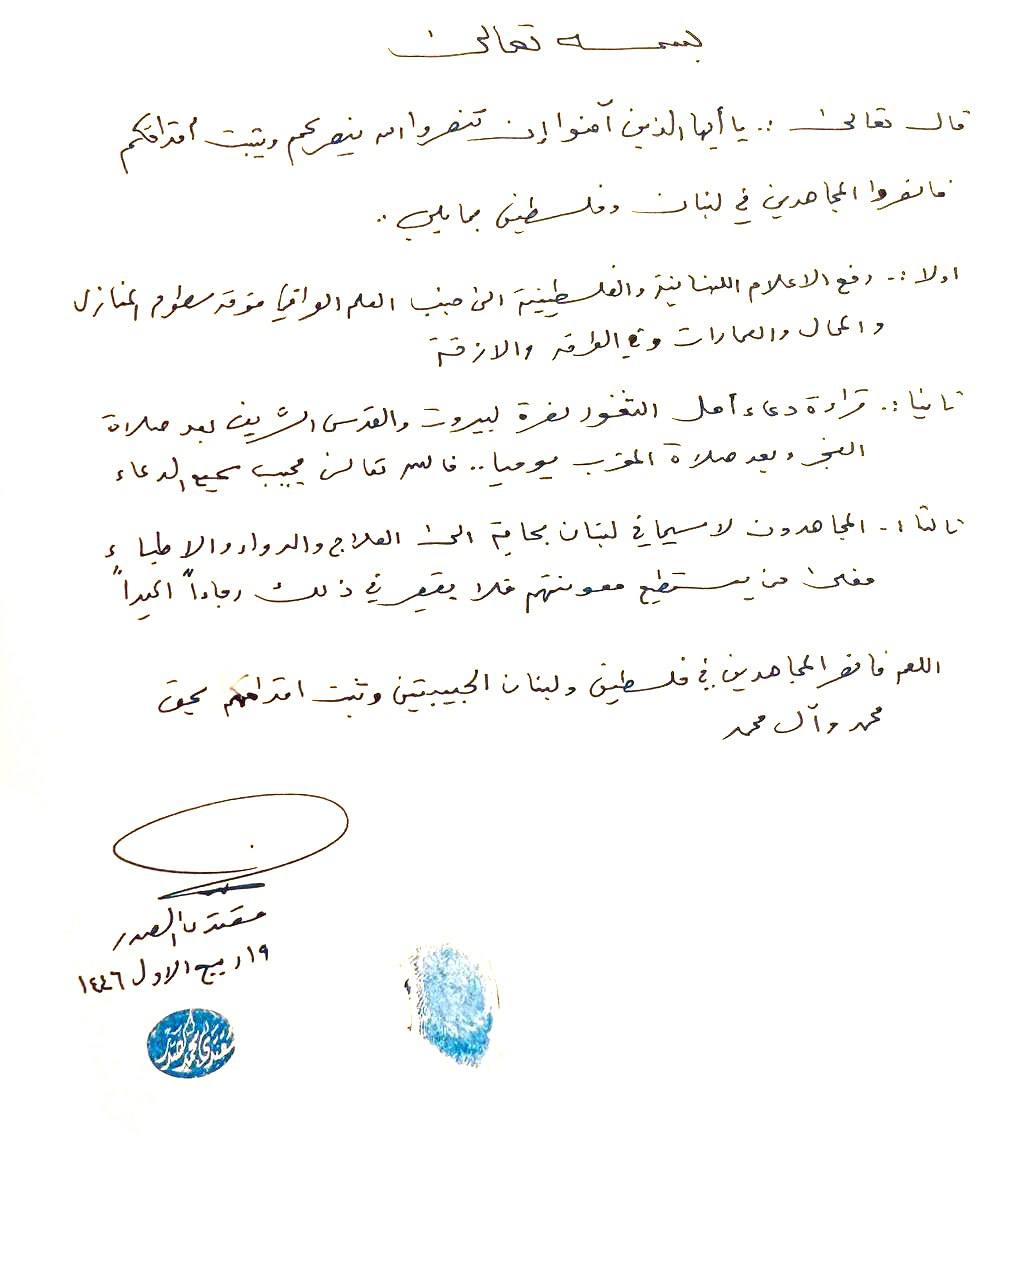 بسمه تعالى
قال تعالى :.. يا أيها الذين آمنوا إن تنصروا الله ينصركم ويثبت أقدامكم
فانصروا المجاهدين في لبنان وفلسطين بما يلي ..
اولا :. رفع الاعلام اللبنانية والفلسطينية الى جنب العلم العراقي فوق سطوح المنازل
والمحال والعمارات وفي الطرق والازقة
ثانيا :. قراءة دعاء أهل الثغور نصرة لبيروت والقدس الشريف بعد صلاة
الفجر وبعد صلاة المغرب يوميا .. فالله تعالى مجيب سميع الدعاء
ثالثا :. المجاهدون لا سيما في لبنان بحاجة الى العلاج والدواء والاطباء
فعلى من يستطيع معونتهم فلا يقصر في ذلك رجاءاً اكيداً
اللهم فانصر المجاهدين في فلسطين ولبنان الحبيبتين وثبت اقدامهم بحق
محمد وآل محمد
مقتدى الصدر
١٩ ربيع الاول ١٤٤٦
مقتدى محمد الصدر